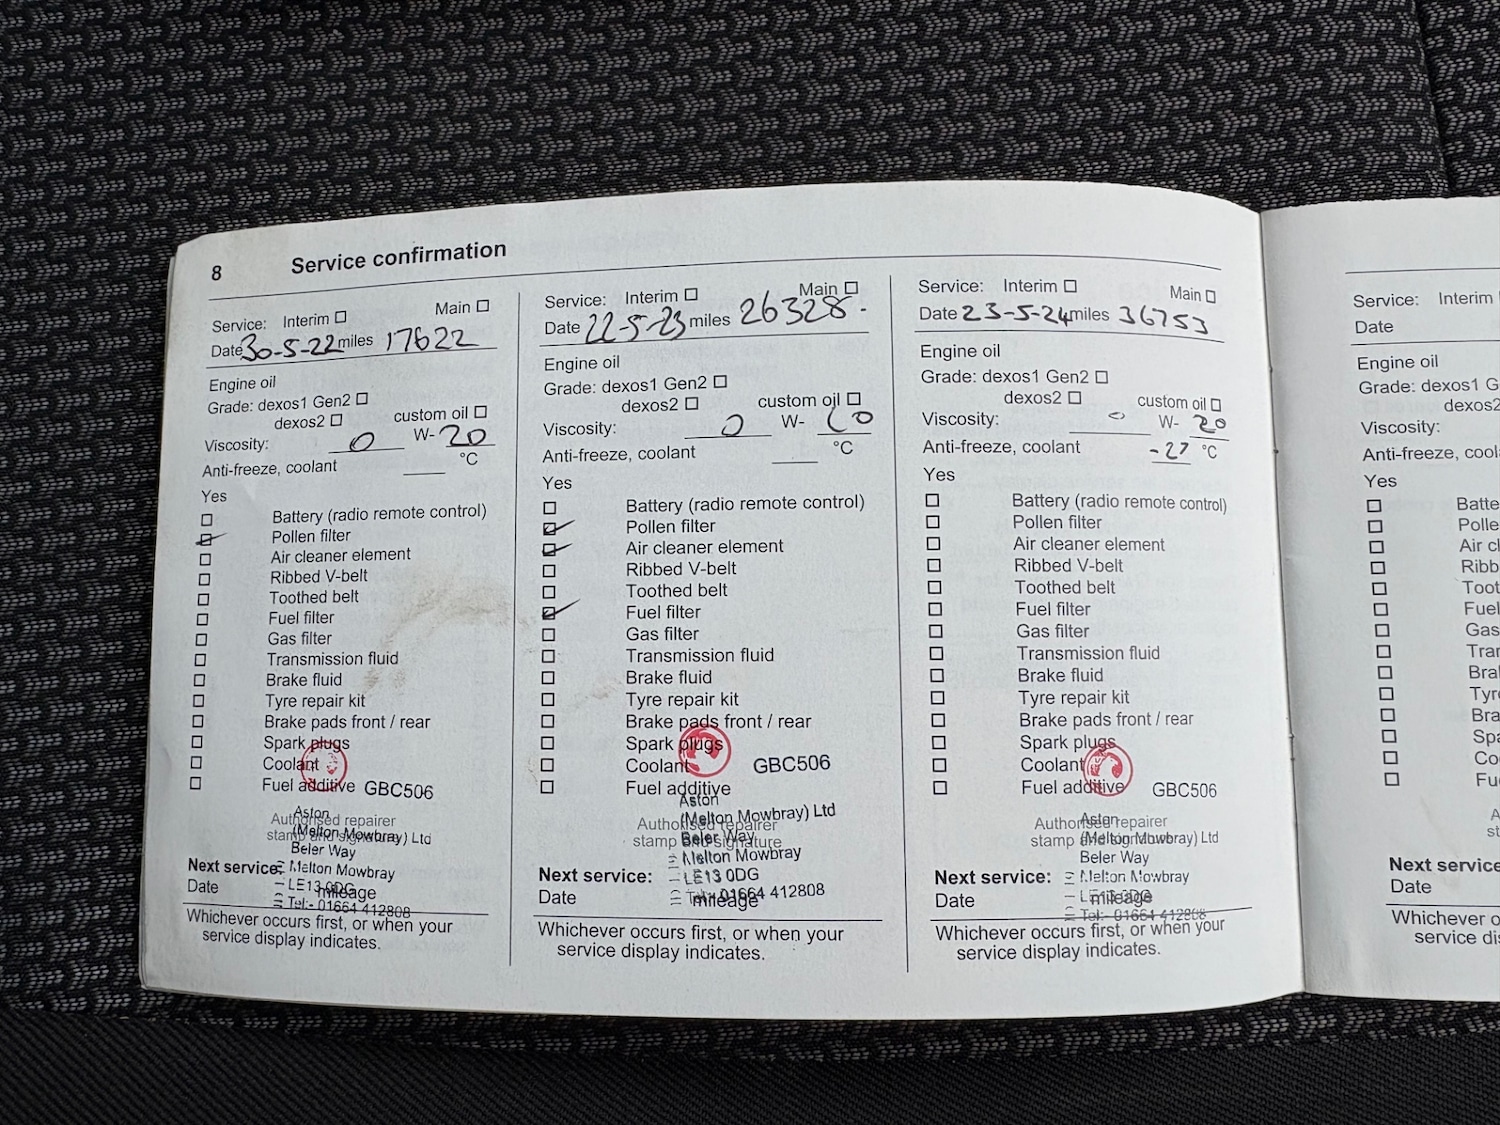 8 Service confirmation
Service: Interim Main
Date 30-5-22 miles 17622
Engine oil
Grade: dexos1 Gen2
dexos2 custom oil
Viscosity: 0 W- 20
Anti-freeze, coolant °C
Yes
Battery (radio remote control)
Pollen filter
Air cleaner element
Ribbed V-belt
Toothed belt
Fuel filter
Gas filter
Transmission fluid
Brake fluid
Tyre repair kit
Brake pads front / rear
Spark plugs
Coolant
Fuel additive GBC506
Aston
Authorised repairer
(Melton Mowbray) Ltd
stamp and signature
Beler Way
Next service: Melton Mowbray
LE13 0DG
Date mileage
Tel:- 01664 412808
Whichever occurs first, or when your
service display indicates.
Service: Interim Main
Date 22-5-23 miles 26328.
Engine oil
Grade: dexos1 Gen2
dexos2 custom oil
Viscosity: 0 W-
Anti-freeze, coolant °C
Yes
Battery (radio remote control)
Pollen filter
Air cleaner element
Ribbed V-belt
Toothed belt
Fuel filter
Gas filter
Transmission fluid
Brake fluid
Tyre repair kit
Brake pads front / rear
Spark plugs
Coolant GBC506
Fuel additive
Aston
(Melton Mowbray) Ltd
Authorised repairer
Beler Way
stamp and signature
Melton Mowbray
Next service: LE13 0DG
Date mileage
Tel:- 01664 412808
Whichever occurs first, or when your
service display indicates.
Service: Interim Main
Date 23-5-24 miles 36753
Engine oil
Grade: dexos1 Gen2
dexos2 custom oil
Viscosity: 0 W- 20
Anti-freeze, coolant -27 °C
Yes
Battery (radio remote control)
Pollen filter
Air cleaner element
Ribbed V-belt
Toothed belt
Fuel filter
Gas filter
Transmission fluid
Brake fluid
Tyre repair kit
Brake pads front / rear
Spark plugs
Coolant
Fuel additive GBC506
Aston
Authorised repairer
(Melton Mowbray) Ltd
stamp and signature
Beler Way
Next service: Melton Mowbray
LE13 0DG
Date mileage
Tel:- 01664 412808
Whichever occurs first, or when your
service display indicates.
Service: Interim
Date
Engine oil
Grade: dexos1 G
dexos2
Viscosity:
Anti-freeze, cool
Yes
Batte
Polle
Air cl
Ribb
Toot
Fuel
Gas
Tran
Bra
Tyre
Bra
Spa
Co
Fu
A
st
Next service
Date
Whichever o
service dis